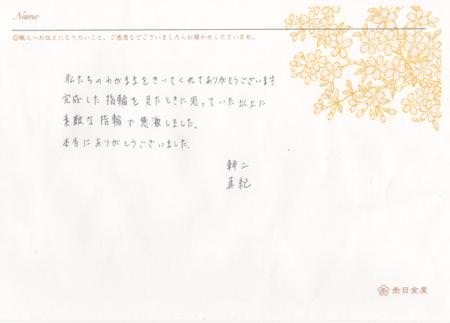 Name
◎職人へお伝えになりたいこと、ご感想などございましたらお聞かせくださいませ。
私たちのわがままをきいてくれてありがとうございます
完成した指輪を見たときに思っていた以上に
素敵な指輪で感激しました。
本当にありがとうございました。
耕二
真紀
杢目金屋